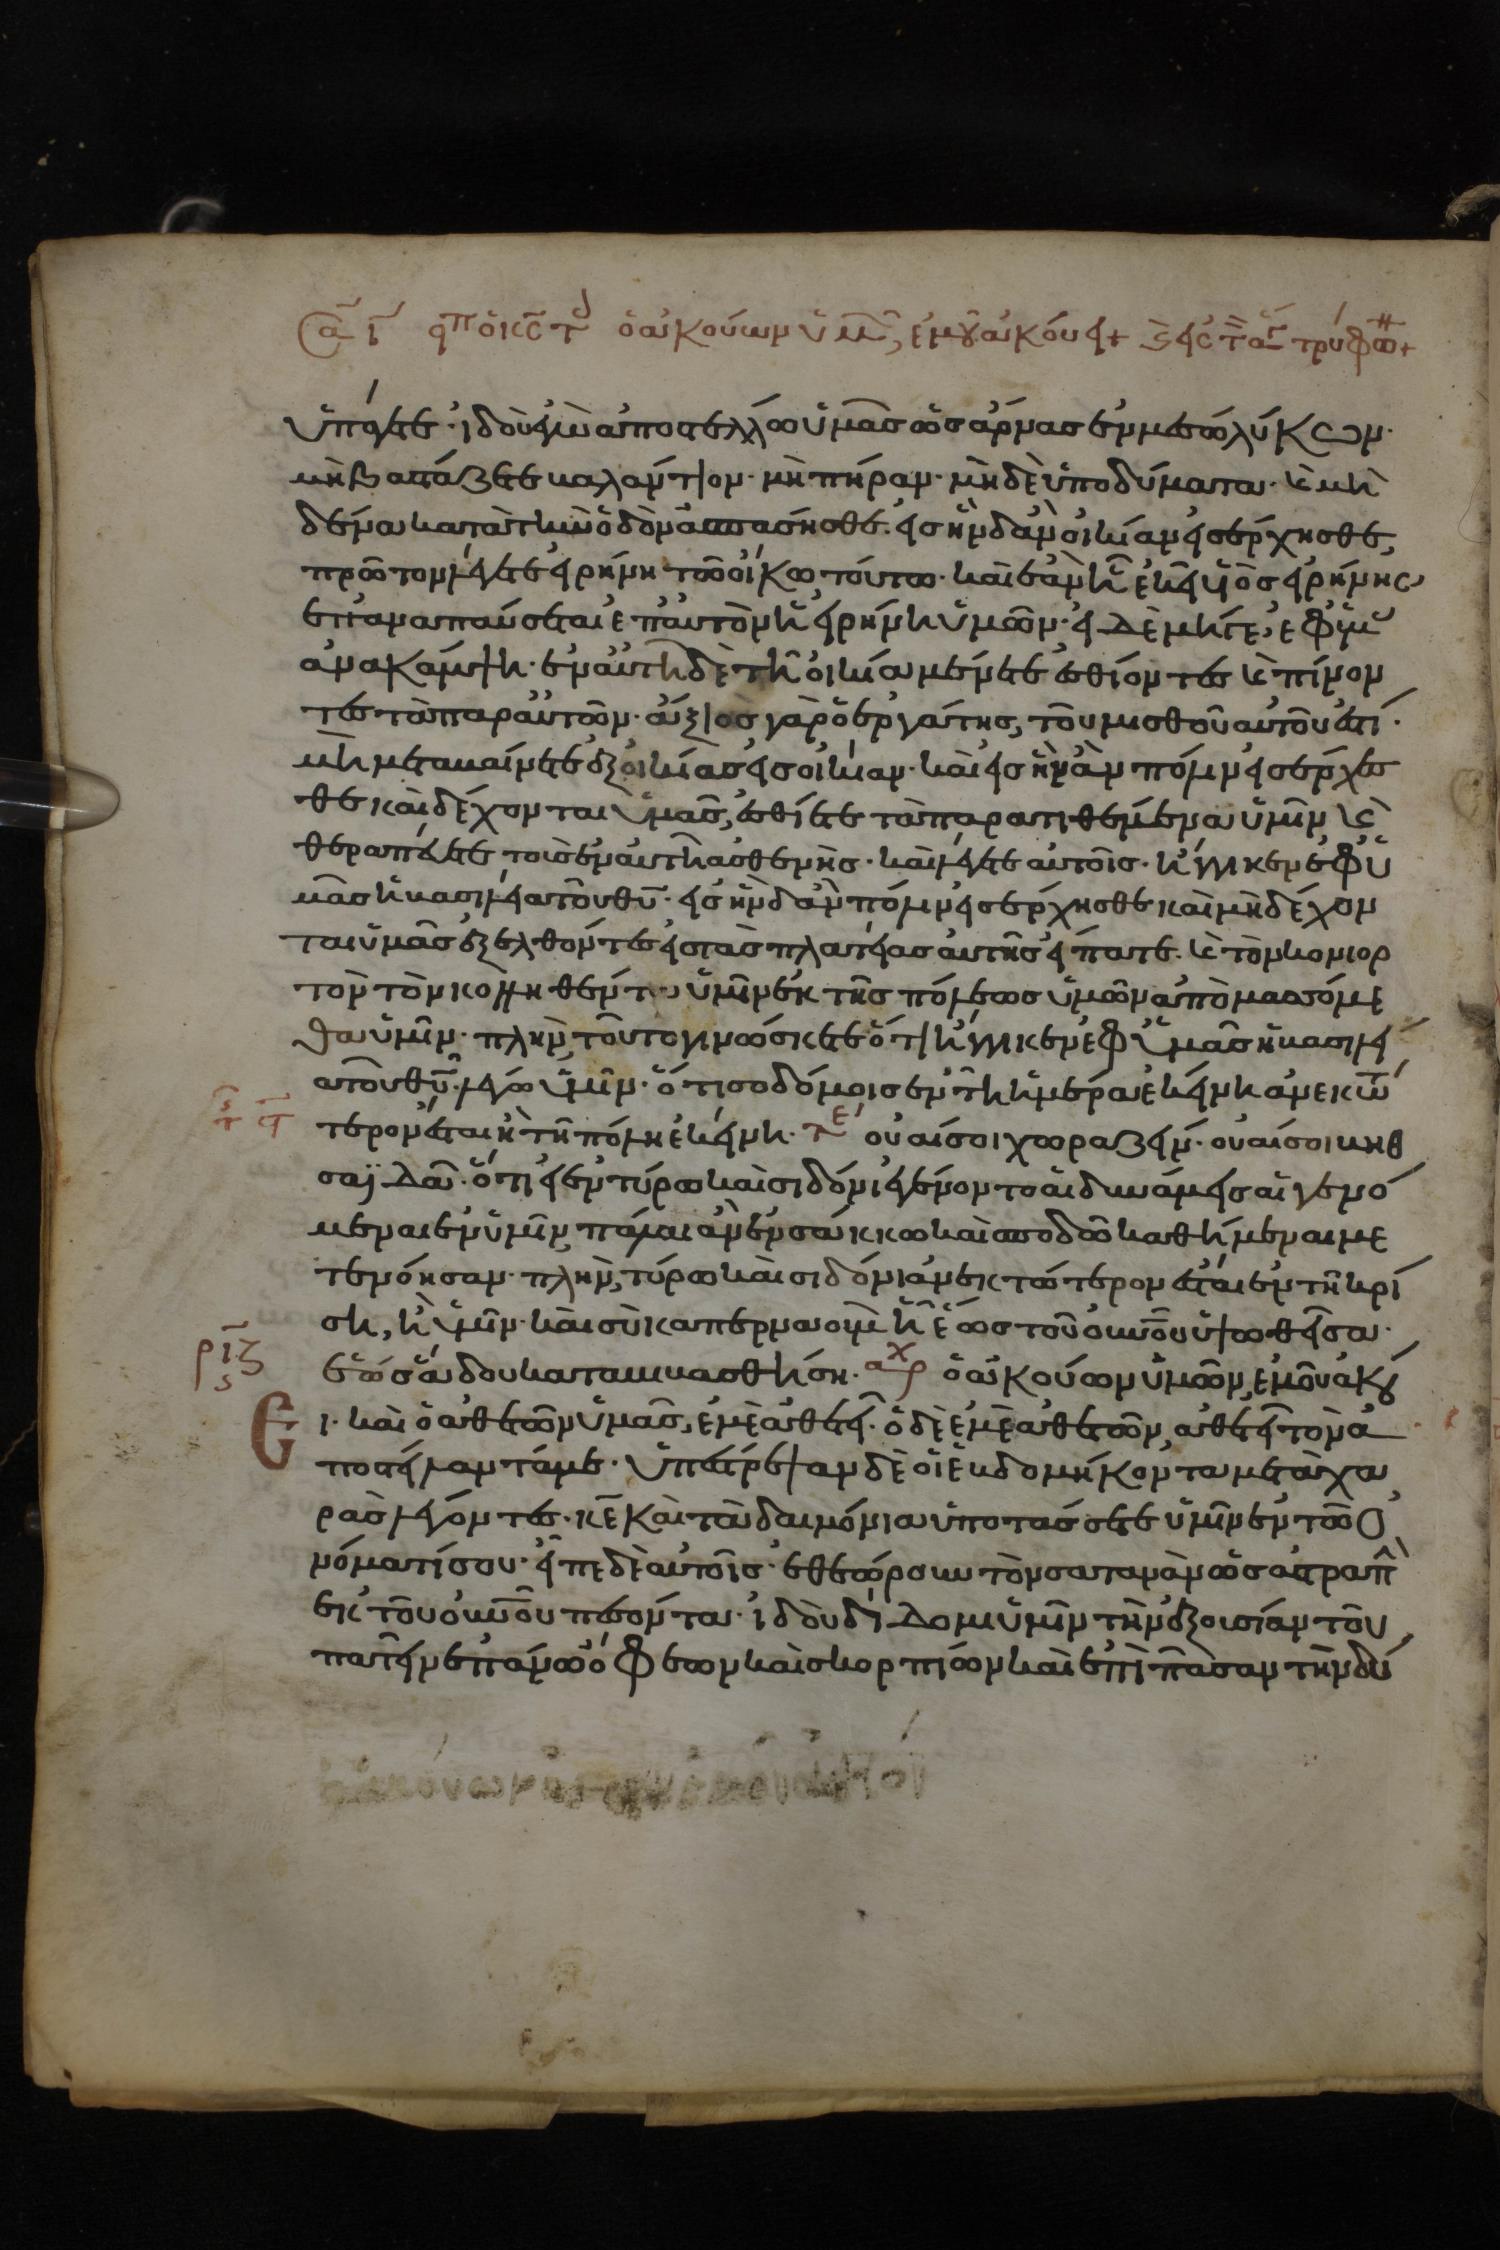 εἶπεν ὁ κς τ ὁ ἀκούων ὑμῶν, ἐμοῦ ἀκούει + εἰς τ τρύφω +
ὑπάγετε· ἰδοὺ ἐγὼ ἀποστέλλω ὑμᾶς ὡς ἄρνας ἐν μέσω λύκων·
μὴ βαστάζετε βαλάντιον· μὴ πήραν· μὴ δὲ ὑποδύματα· καὶ μη
δένα κατὰ τὴν ὁδὸν ἀσπασησθε· εἰς ἣν δ' ἂν οἰκίαν εἰσέρχησθε,
πρῶτον λέγετε εἰρήνη τῶ οἴκω τούτω· καὶ ἐὰν ἦ ἐκεῖ υἱὸς εἰρήνης
ἐπαναπαύσεται ἐπ' αὐτὸν ἡ εἰρήνη ὑμῶν· εἰ δὲ μήγε, ἐφ' ὑμᾶς
ἀνακάμψη· ἐν αὐτῆ δὲ τῆ οἰκία μένετε ἐσθίοντες καὶ πίνον
τες τὰ παρ' αὐτῶν· ἄξιος γὰρ ὁ ἐργάτης, τοῦ μισθοῦ αὐτοῦ ἐστί·
μὴ μεταβαίνετε ἐξ οἰκίας εἰς οἰκίαν· καὶ εἰς ἣν ἂν πόλιν εἰσέρχεσ
θε καὶ δέχονται ὑμᾶς, ἐσθίετε τὰ παρατιθέμενα ὑμῖν καὶ
θεραπεύετε τοὺς ἐν αὐτῆ ἀσθενεῖς· καὶ λέγετε αὐτοῖς· ἤγγικεν ἐφ' ὑ
μᾶς ἡ βασιλεία τοῦ θυ· εἰς ἣν δ' ἂν πόλιν εἰσέρχησθε καὶ μὴ δέχον
ται ὑμᾶς ἐξελθόντες εἰς τὰς πλατείας αὐτῆς εἴπατε· καὶ τὸν κονιορ
τὸν τὸν κολληθέντα ὑμῖν ἐκ τῆς πόλεως ὑμῶν ἀπομασσόμε
θα ὑμῖν· πλὴν τοῦτο γινώσκετε ὅτι ἤγγικεν ἐφ' ὑμᾶς ἡ βασιλεί
α τοῦ θυ· λέγω ὑμῖν· ὅτι σοδόμοις ἐν τῆ ἡμέρα ἐκείνη ἀνεκτώ
τερον ἔσται ἢ τῆ πόλει ἐκείνη· τε οὐαί σοι χωραζείν· οὐαί σοι βηθ
σαϊδάν· ὅτι εἰ ἐν τύρω καὶ σιδόνι ἐγένοντο αἱ δυνάμεις αἱ γενό
μεναι ἐν ὑμῖν, πάλαι ἂν ἐν σάκκω καὶ σποδῶ καθήμεναι με
τενόησαν· πλὴν, τύρω καὶ σιδόνι ἀνεκτότερον ἔσται ἐν τῆ κρί
σει, ἢ ὑμῖν· καὶ σὺ καπερναοὺμ ἡ ἕως τοῦ οὐνοῦ ὑψωθεῖσα·
ἕως ἅδου καταβιβασθήση· ἀρχ ὁ ἀκούων ὑμῶν, ἐμοῦ ἀκού
ριζ
ει· καὶ ὁ ἀθετῶν ὑμᾶς, ἐμὲ ἀθετεῖ· ὁ δὲ ἐμὲ ἀθετῶν, ἀθετεῖ τὸν ἀ
ποστείλαντά με· ὑπέστρεψαν δὲ οἱ ἑβδομήκοντα μετὰ χα
ρᾶς λέγοντες· κε καὶ τὰ δαιμόνια ὑποτάσσεται ὑμῖν ἐν τῶ ὀ
νόματί σου· εἶπε δὲ αὐτοῖς· ἐθεώρουν τὸν σατανὰν ὡς ἀστραπὴν
ἐκ τοῦ οὐνοῦ πεσόντα· ἰδοὺ δίδομι ὑμῖν τὴν ἐξουσίαν τοῦ
πατεῖν ἐπάνω ὄφεων καὶ σκορπίων καὶ ἐπὶ πᾶσαν τὴν δύ